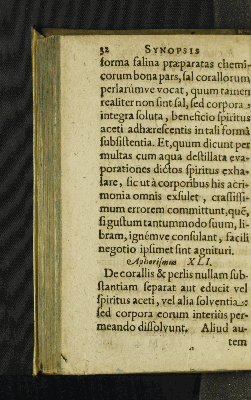 32 SYNOPSIS
forma salina præparatas chemi-
corum bona pars, sal corallorum
perlarúmve vocat, quum tamen
realiter non sint sal, sed corpora
integra soluta, beneficio spiritus
aceti adhærescentis in tali formâ
subsistentia. Et, quum dicunt per
multas cum aqua destillata eva-
porationes dictos spiritus exha-
lare, sic ut à corporibus his acri-
monia omnis exsulet, crassissi-
mum errorem committunt, quē,
si gustum tantummodo suum, li-
bram, ignémve consulant, facili
negotio ipsimet sint agnituri.
Aphorismus XLI.
De corallis & perlis nullam sub-
stantiam separat aut educit vel
spiritus aceti, vel alia solventia:
sed corpora eorum interiùs per-
meando dissolvunt. Aliud au-
tem